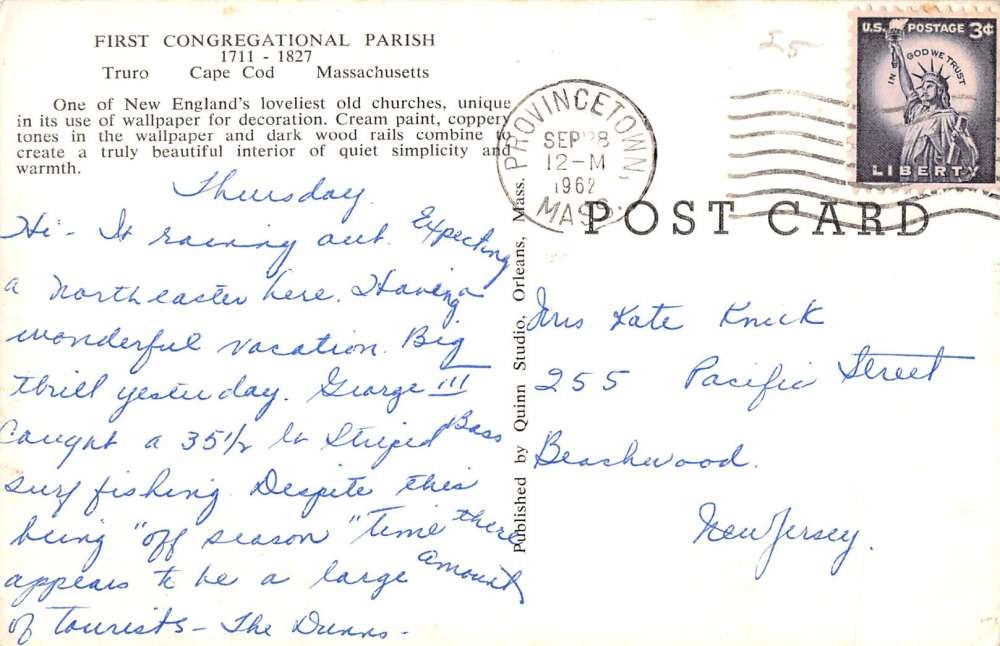 FIRST CONGREGATIONAL PARISH
1711 - 1827
Truro Cape Cod Massachusetts
One of New England's loveliest old churches, unique
in its use of wallpaper for decoration. Cream paint, coppery
tones in the wallpaper and dark wood rails combine to
create a truly beautiful interior of quiet simplicity and
warmth.
Thursday
Hi - It raining out. Expecting
a northeaster here. Having a
wonderful vacation. Big
thrill yesterday. George III
caught a 35 1/2 lb Striped Bass
surf fishing. Despite this
being "off season" time there
appears to be a large amount
of tourists - The Dunns -
Published by Quinn Studio, Orleans, Mass.
PROVINCETOWN,
SEP 28
12-M
1962
MASS.
25
U.S. POSTAGE 3¢
IN GOD WE TRUST
LIBERTY
POST CARD
Mrs Kate Knick
255 Pacific Street
Beachwood.
New Jersey.